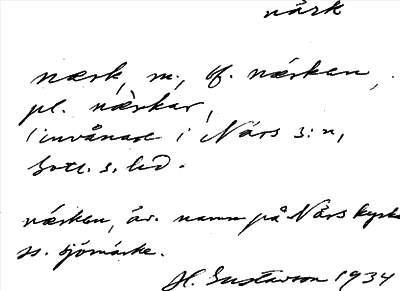 nårk
nærk, m., bf. nærken,
pl. nærkar,
invånare i Närs s:n,
Gotl. s. led.
nærken, äv. namn på Närs kyrka
ss. sjömärke.
H. Gustavson 1934